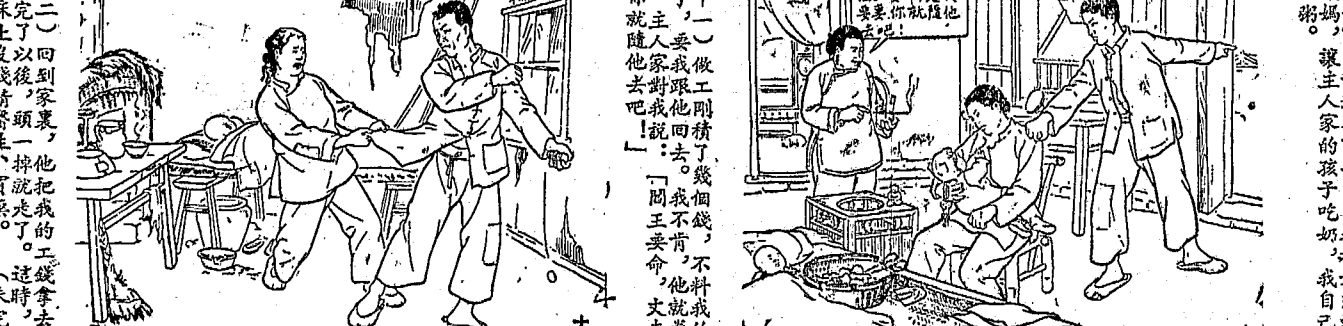 媽，讓主人家的孩子吃奶，我自己
粥。
要，你就隨他
去吧！
一）做工剛積了幾個錢，不料我
了，要我跟他回去。我不肯，他就
主人家對我說：「閻王要命，丈
你就隨他去吧！」
二）回到家裏，他把我的工錢拿去
完了以後，頭一掉就走了。這時，
床上沒錢請醫生、買藥。